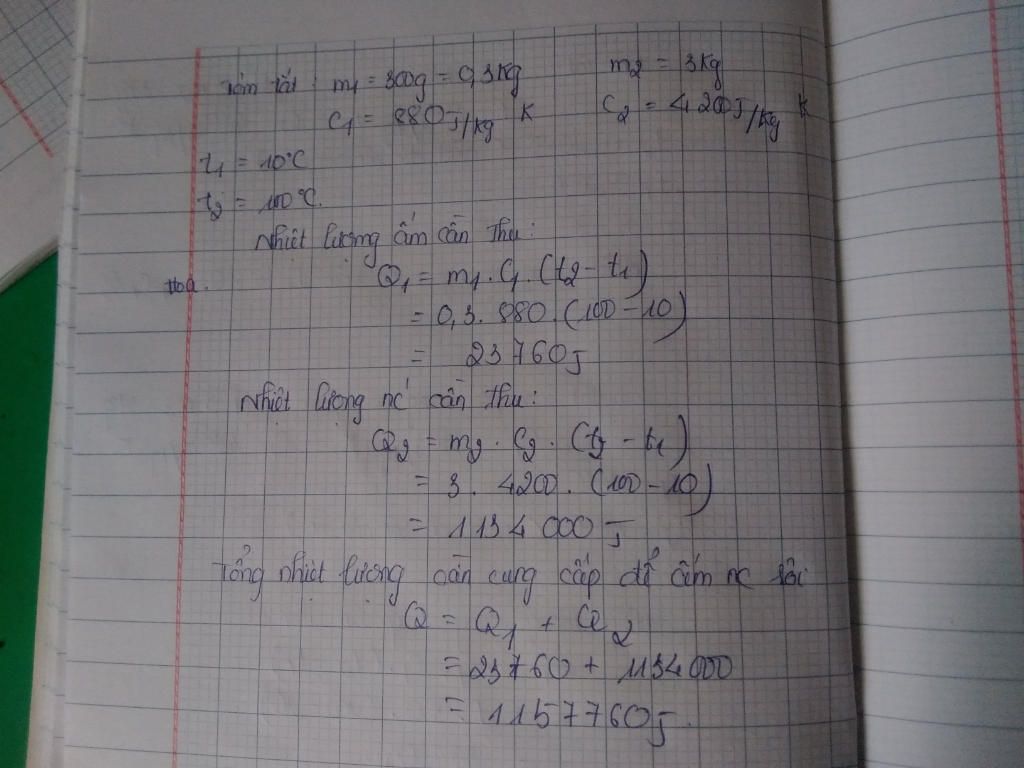 Tóm tắt: m₁ = 300g = 0,3kg m₂ = 3kg
C₁ = 880J/kg K C₂ = 4200J/kg K
t₁ = 10°C
t₂ = 100°C.
Nhiệt lượng ấm cần thu:
Q₁ = m₁. C₁. (t₂ - t₁)
= 0,3. 880. (100 - 10)
= 23760J
Nhiệt lượng nc cần thu:
Q₂ = m₂. C₂. (t₂ - t₁)
= 3. 4200. (100 - 10)
= 1134000J
Tổng nhiệt lượng cần cung cấp để ấm nc sôi
Q = Q₁ + Q₂
= 23760 + 1134000
= 1157760J.